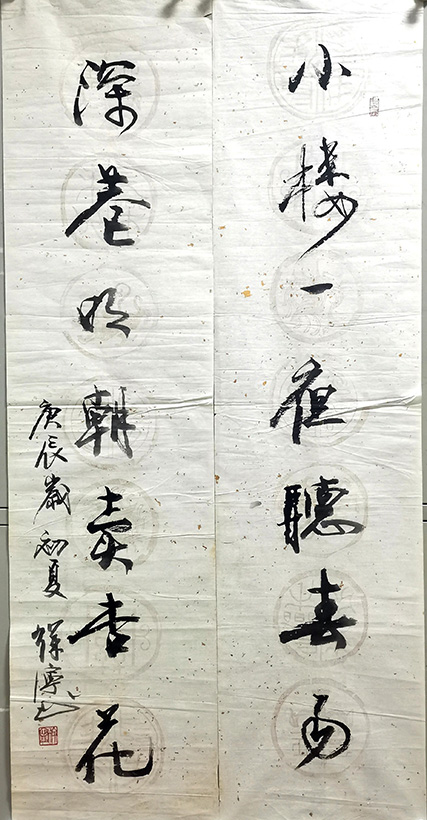 小楼一夜聽春雨
深巷明朝賣杏花
庚辰歲初夏